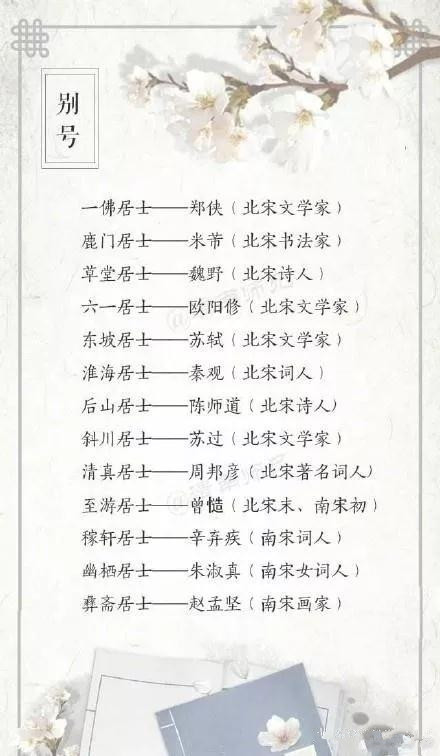 别号
一佛居士——郑侠（北宋文学家）
鹿门居士——米芾（北宋书法家）
草堂居士——魏野（北宋诗人）
六一居士——欧阳修（北宋文学家）
东坡居士——苏轼（北宋文学家）
淮海居士——秦观（北宋词人）
后山居士——陈师道（北宋诗人）
斜川居士——苏过（北宋文学家）
清真居士——周邦彦（北宋著名词人）
至游居士——曾慥（北宋末、南宋初）
稼轩居士——辛弃疾（南宋词人）
幽栖居士——朱淑真（南宋女词人）
彝斋居士——赵孟坚（南宋画家）